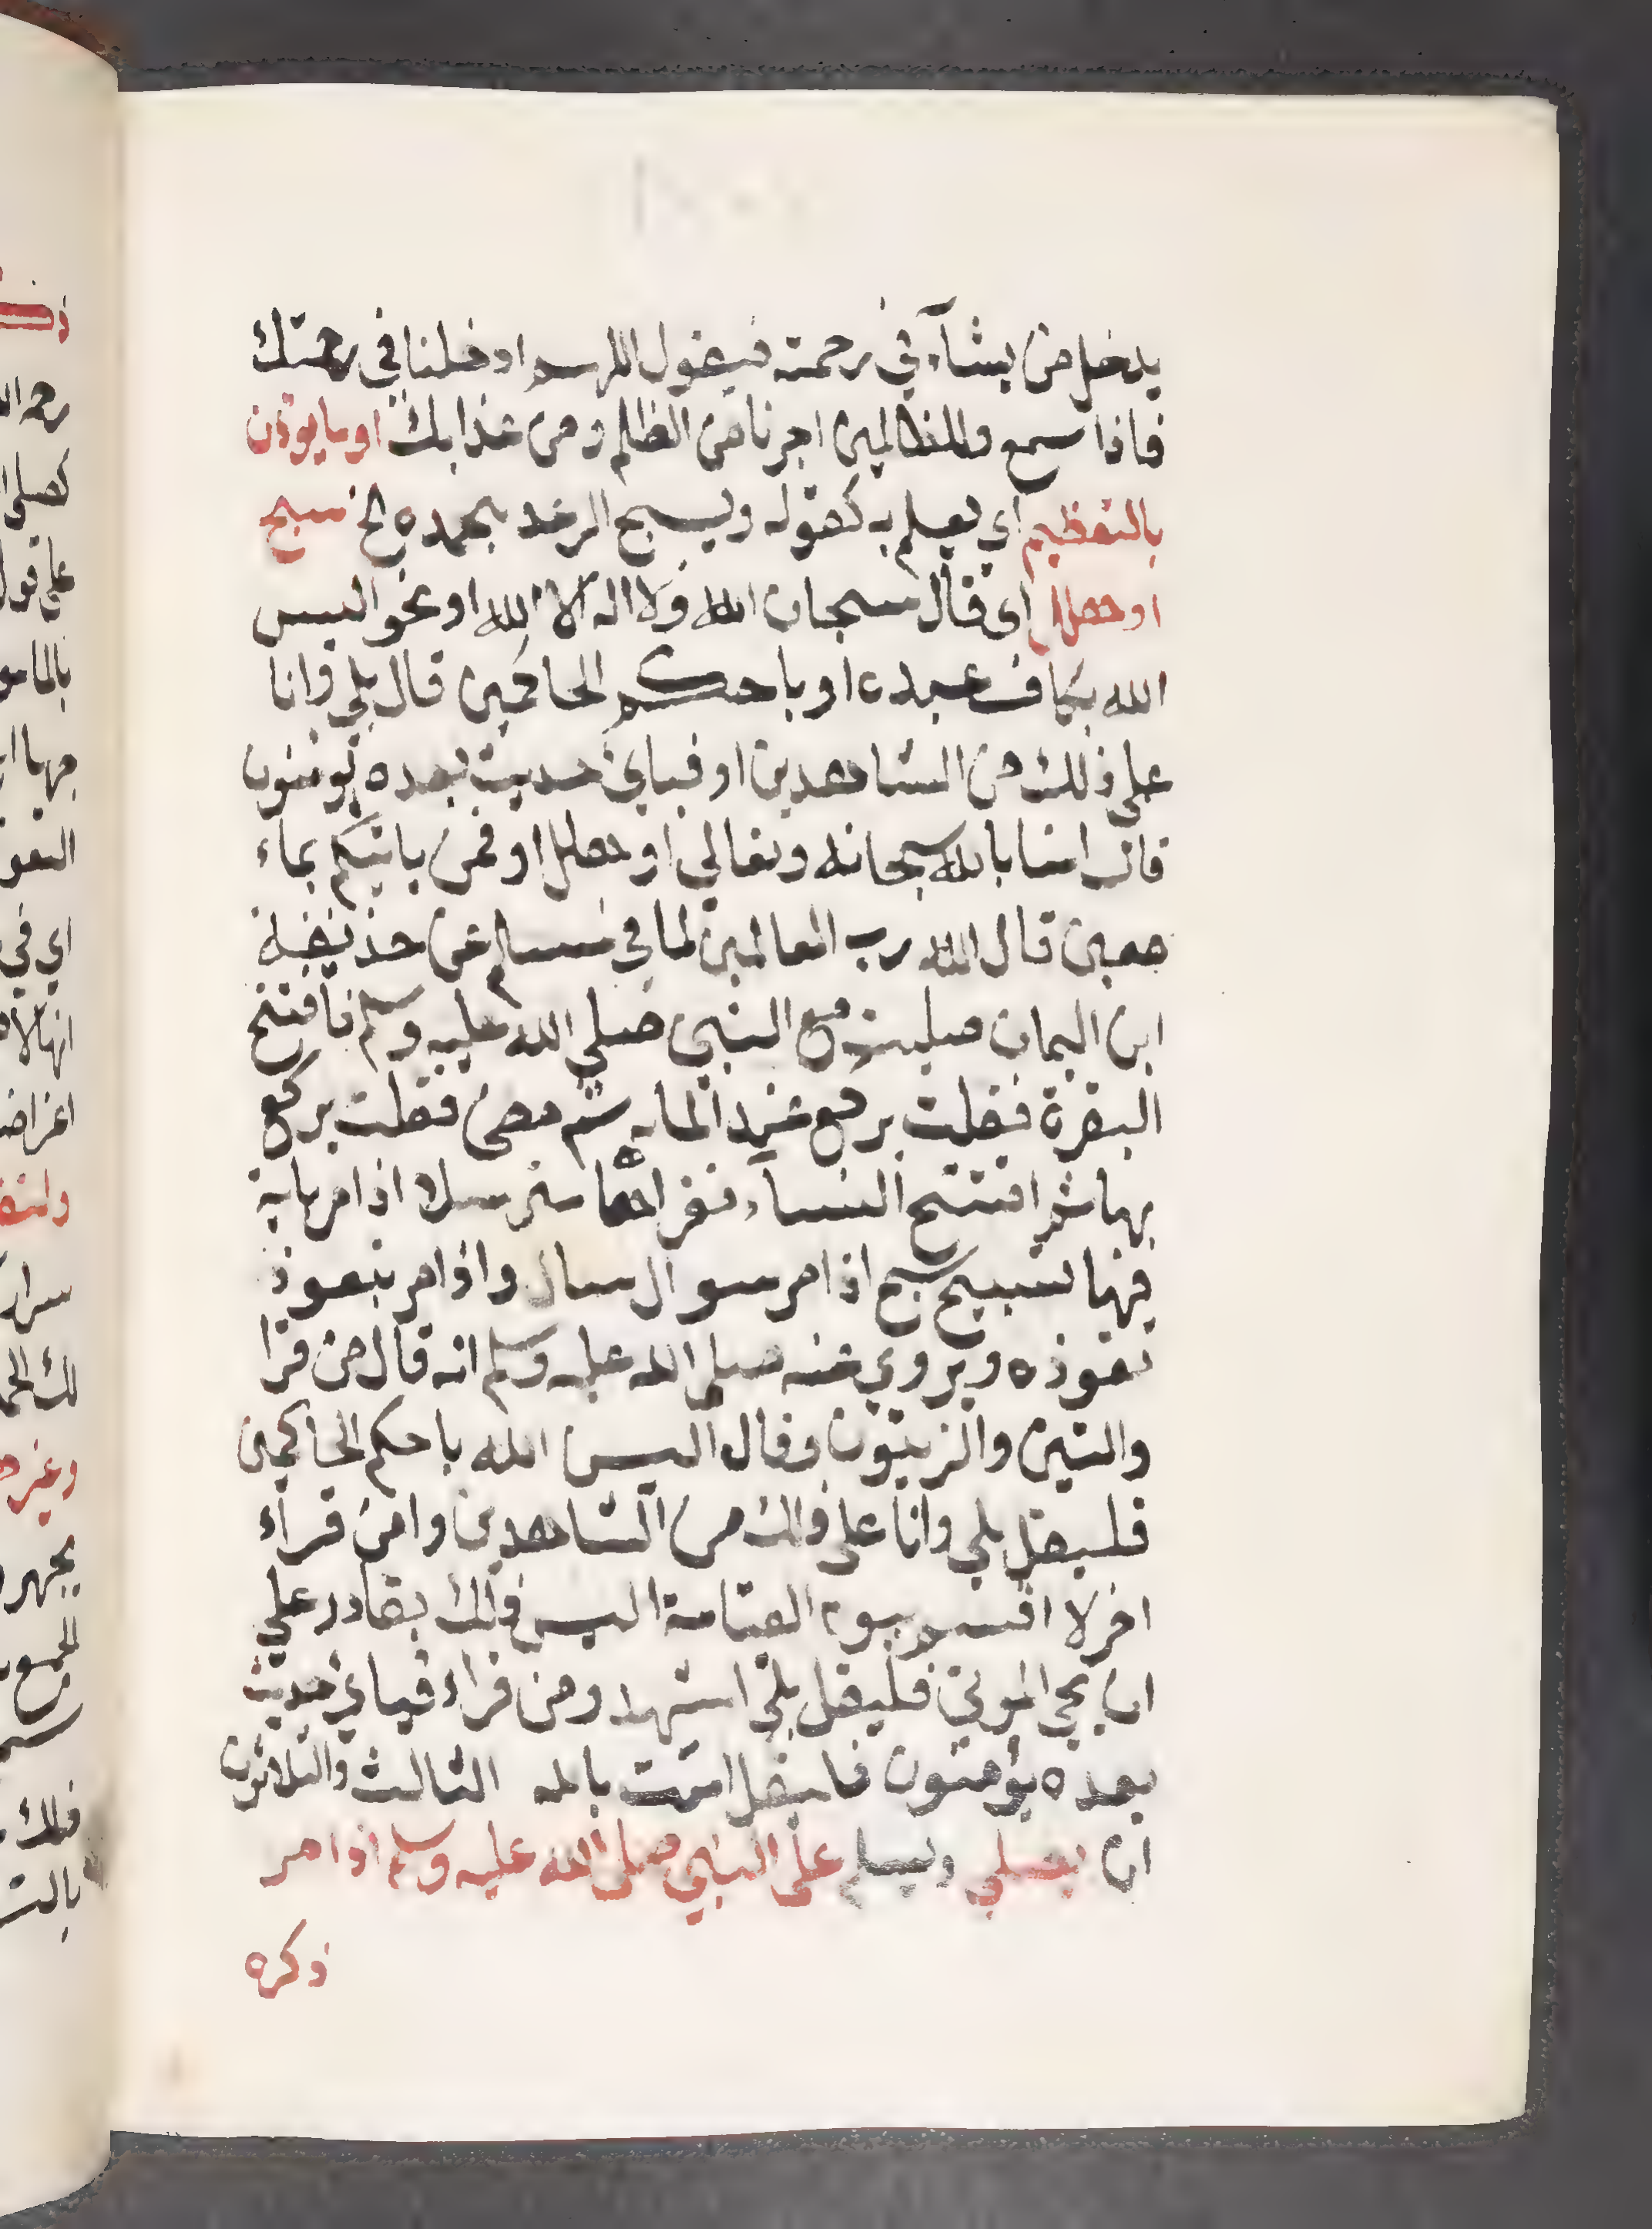 يدخل من يشآء في رحمته فيقول اللهم ادخلنا في رحمتك
فاذا سمع والظالمين اجرنا من الظلم ومن عذابك او بايوذن
بالتعظيم اي يعلم به كقوله ويسبح الرعد بحمده الخ سبح
او هلل اي قال سبحان الله ولا اله الا الله او نحو اليس
الله بكاف عبده او باحكم الحاكمين قال بلي وانا
علي ذلك من الشاهدين او فباي حديث بعده يومنون
قال امنا بالله سبحانه وتعالي او هلل او فمن ياتيكم بماء
معين قال الله رب العالمين لما في مسلم عن حذيفة
ابن اليمان صليت مع النبي صلي الله عليه وسلم فافتتح
البقرة فقلت يركع عند المايه ثم مضي فقلت يركع
بها ثم افتتح النساء فقراها مترسلا اذا مر باية
فيها تسبيح سبح اذا مر سوال سال واذا مر بتعوذ
تعوذ ه ويروي عنه صلي الله عليه وسلم انه قال من قرا
والتين والزيتون فقال اليس الله باحكم الحاكمين
فليقل بلي وانا علي ذلك من الشاهدين وامن قراء
اخر لا اقسم بيوم القيامة اليس ذلك بقادر علي
ان يحي الموتي فليقل بلي اشهد ومن قراء فباي حديث
بعده يومنون فليقل امنت بالله الثالث والثلاثون
ان يصلي ويسلم علي النبي صلي الله عليه وسلم اذا مر
ذكره